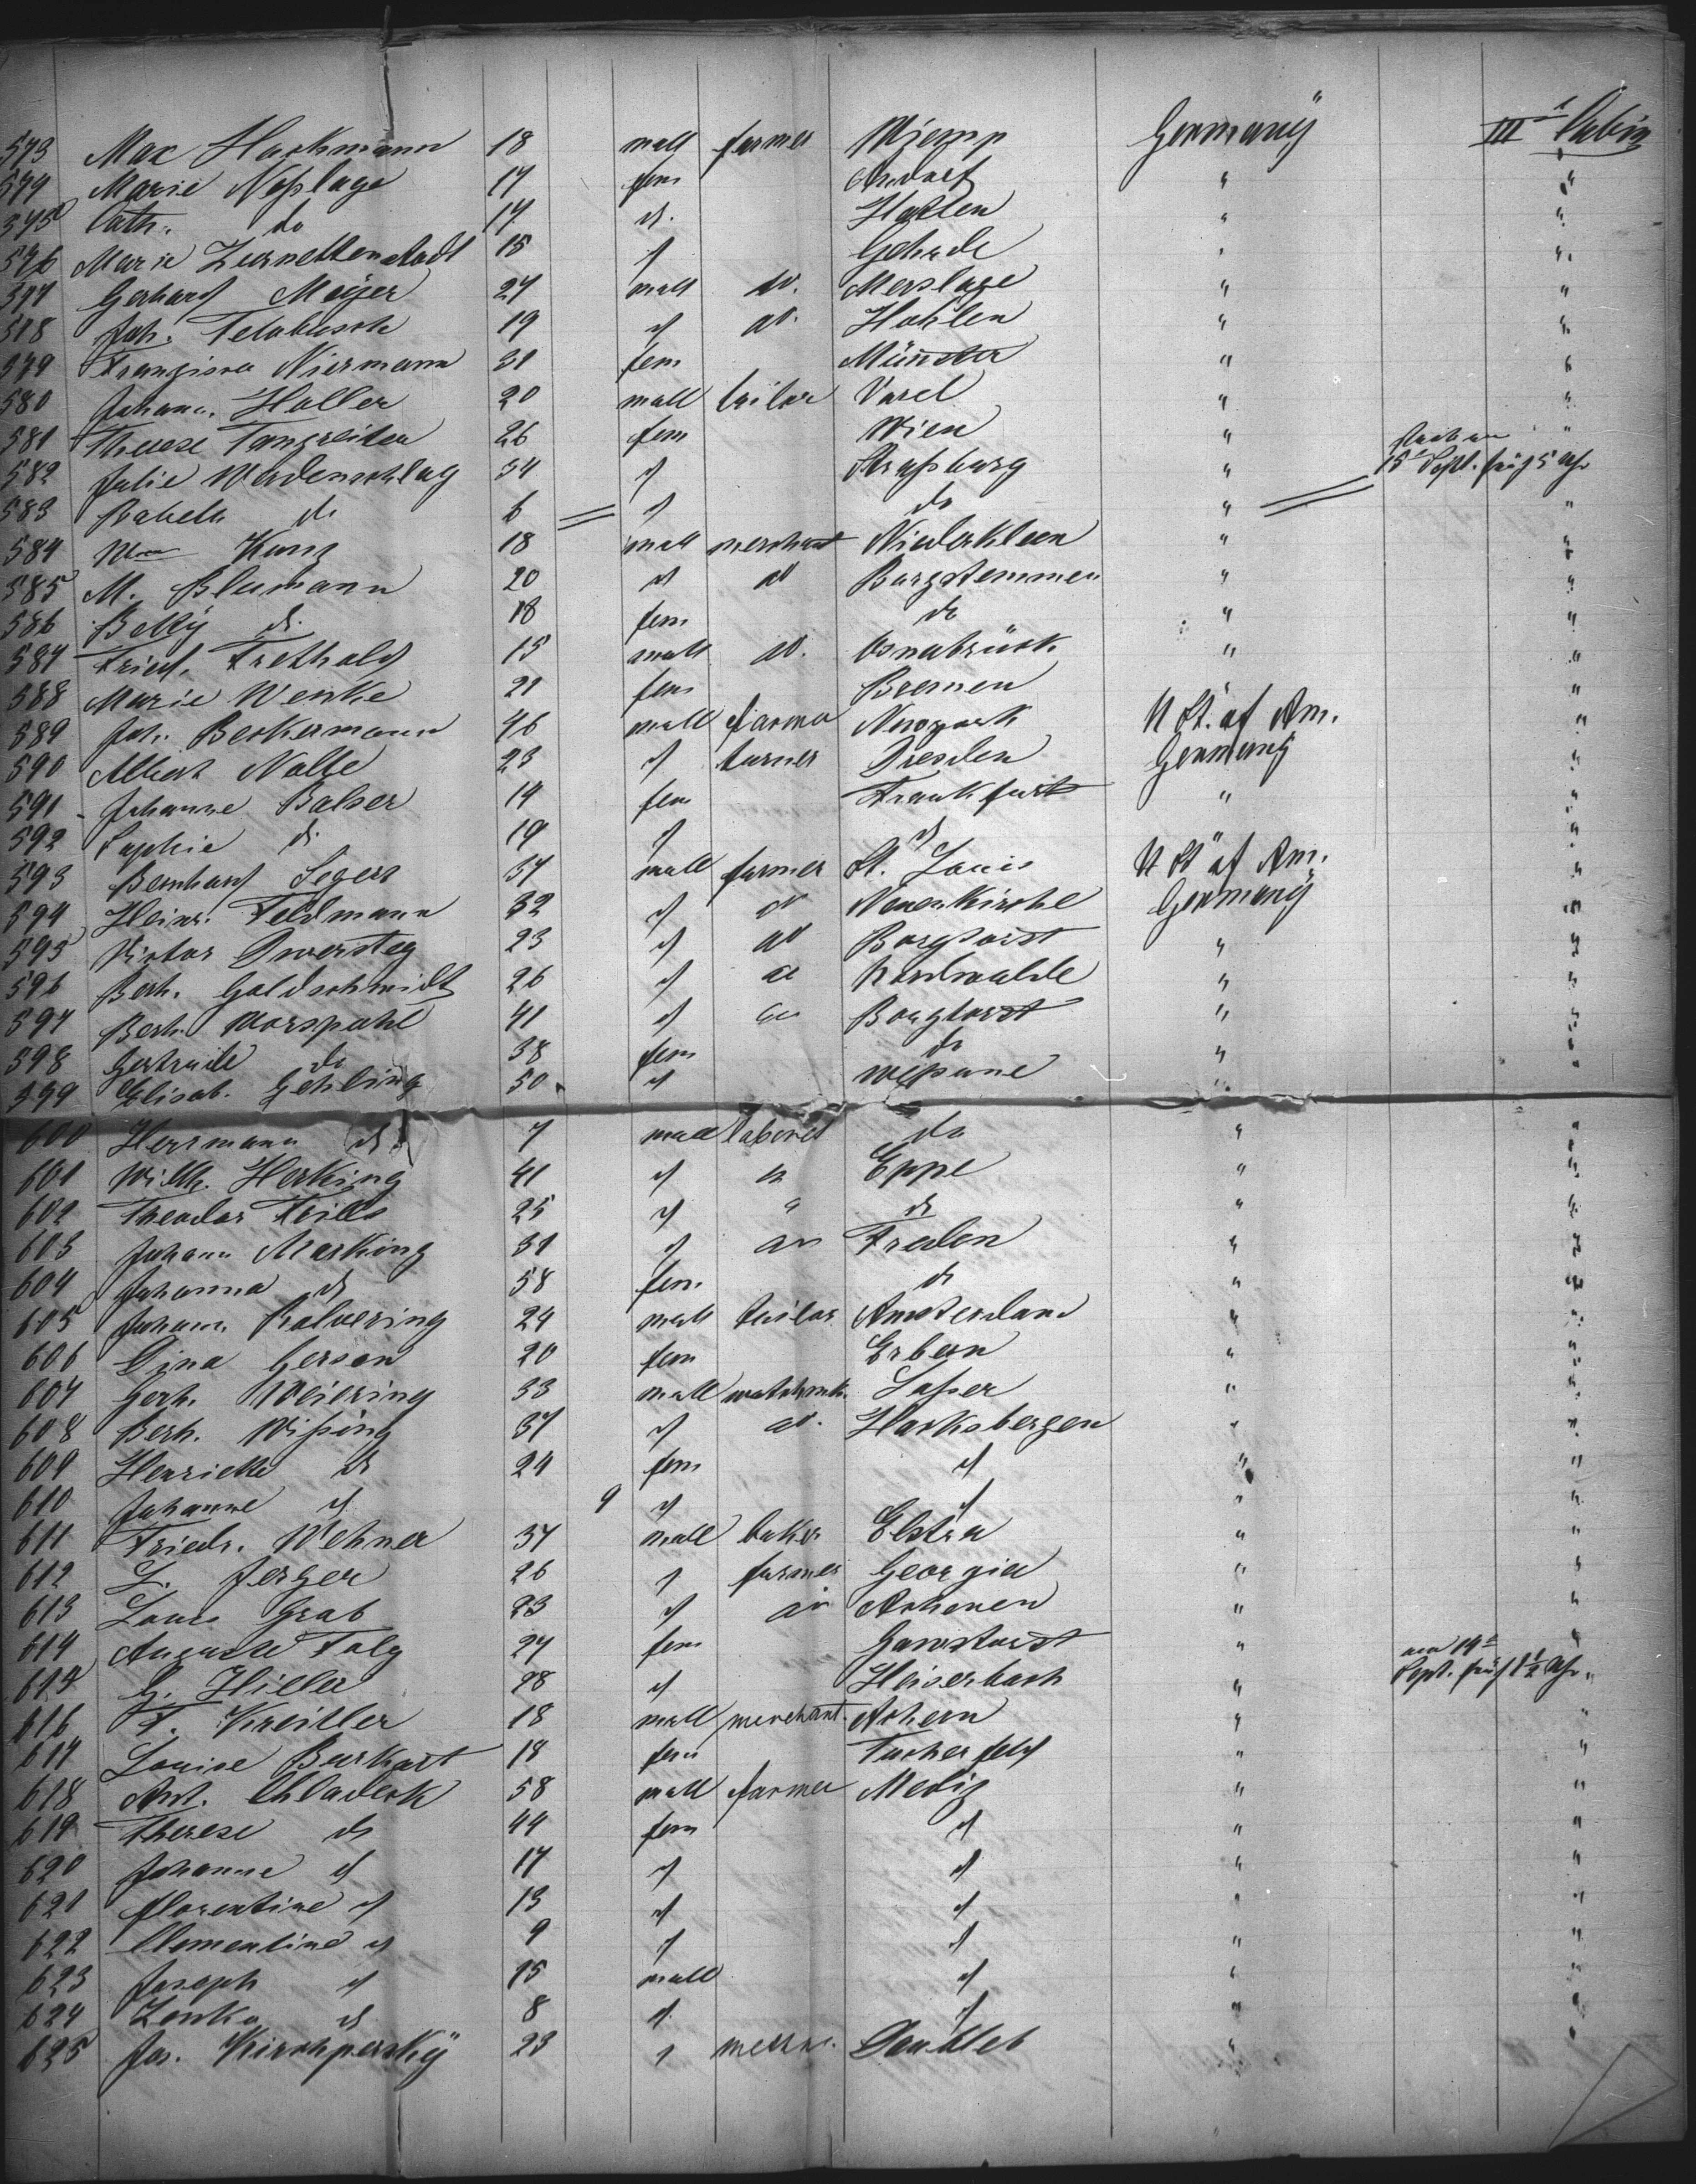 III Cabin
573 Max Hackmann 18 mall farmer Wiemp Germany "
574 Marie Neßlage 17 fem Ardorf " "
575 Cath. do 17 d. Hahlen " "
576 Marie Zurnettenstadt 15 d Gehrde " "
577 Gerhard Meijer 27 mall do. Merslage " "
578 Joh. Telobusch 19 d do. Hahlen " "
579 Franzisca Niermann 31 fem Münster " "
580 Johann Haller 20 mall tailor Varel " "
581 Therese Tangreiter 26 fem Wien " "
582 Julie Wedenschlag 34 d Straßburg "
15t Sept. früh 5 Uhr
583 Babeth do 6 d do " "
584 Kunz 18 mall merchant Niederkleen " "
585 M. Blumann 20 d do Burgstemmen " "
586 Betty do. 18 fem do " "
587 Fried. Frethold 15 mall do. Osnabrück " "
588 Marie Wenke 21 fem Bremen " "
589 Joh. Beckermann 46 mall farmer Newyork U St. of Am. "
590 Albert Nolte 23 d turner Dresden Germany "
591 Johanne Balser 14 fem Frankfurt " "
592 Sophie do. 19 d d " "
593 Bernhard Segers 37 mall farmer St. Louis U St of Am. "
594 Heinr. Feldmann 32 d do Neuenkirche Germany "
595 Victor Dwersteg 23 d do Borghorst " "
596 Bern. Goldschmidt 26 d do Nordwalde " "
597 Bern. Morspohl 41 d do Borghorst " "
598 Gertrude do 38 fem do " "
599 Elisab. Gehling 50 d " "
600 Herrmann d 7 mall laborer do " "
601 Wilh. Herking 41 d do Eppe " "
602 Theodor 25 d " do " "
603 Johann Marking 31 d do Freden " "
604 Johanna do 58 fem. do " "
605 Johann Rolvering 24 mall tailor Amsterdam " "
606 Dina Gerson 20 fem Erbern " "
607 Gerh. Weiering 33 mall watchmk. Loßer " "
608 Bern. Wißing 37 d do. Hacksbergen " "
609 Henriette do 24 fem d " "
610 Johanne d 9 d d " "
611 Friedr. Wehner 37 mall baker Elstra " "
612 L. Jerger 26 d farmer Georgia " "
613 Louis Grab 23 d do Achenen " "
614 Auguste Folg 27 fem " "
am 19t
Sept. früh 1½ Uhr
615 G. Hiller 28 d Heiserbach " "
616 F. Kreitler 18 mall merchant. Achern " "
617 Louise Burkart 18 fem Tucherfeld " "
618 Ant. Chladeck 58 mall farmer Meditz " "
619 Therese do 44 fem d " "
620 Johanne d 17 d d " "
621 Florentine d 13 d d " "
622 Clementine d 9 d d " "
623 Joseph d 15 mall d " "
624 Zenka d 8 d. d " "
625 Jos. Kirschpersky 23 d